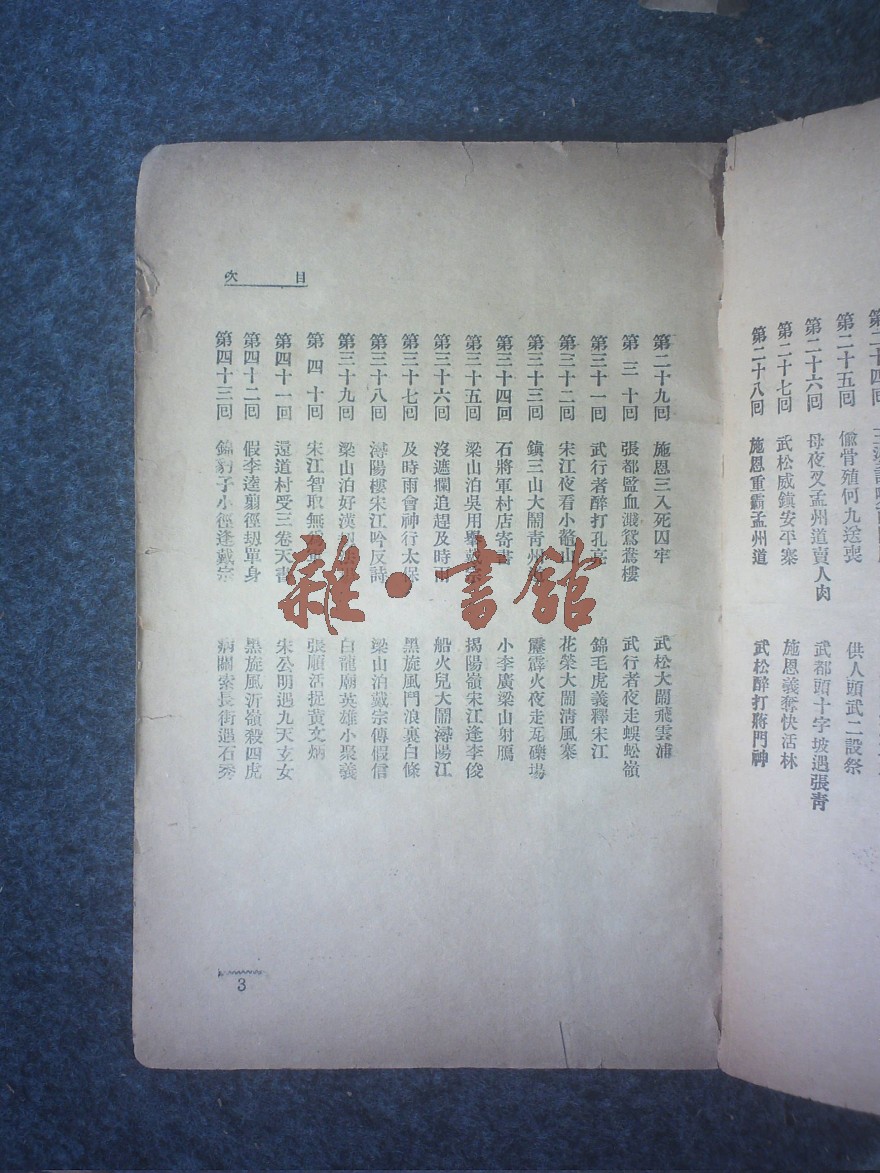 第二十四回
第二十五回 偷骨殖何九送喪 供人頭武二設祭
第二十六回 母夜叉孟州道賣人肉 武都頭十字坡遇張青
第二十七回 武松威鎮安平寨 施恩義奪快活林
第二十八回 施恩重霸孟州道 武松醉打蔣門神
目 次
第二十九回 施恩三入死囚牢 武松大鬧飛雲浦
第三十回 張都監血濺鴛鴦樓 武行者夜走蜈蚣嶺
第三十一回 武行者醉打孔亮 錦毛虎義釋宋江
第三十二回 宋江夜看小鰲山 花榮大鬧清風寨
第三十三回 鎮三山大鬧青州 霹靂火夜走瓦礫場
第三十四回 石將軍村店寄書 小李廣梁山射鴈
第三十五回 梁山泊吳用舉戴宗 揭陽嶺宋江逢李俊
第三十六回 沒遮攔追趕及時雨 船火兒大鬧潯陽江
第三十七回 及時雨會神行太保 黑旋風鬥浪裏白條
第三十八回 潯陽樓宋江吟反詩 梁山泊戴宗傳假信
第三十九回 梁山泊好漢劫 白龍廟英雄小聚義
第四十回 宋江智取無 張順活捉黃文炳
第四十一回 還道村受三卷天書 宋公明遇九天玄女
第四十二回 假李逵翦徑刧單身 黑旋風沂嶺殺四虎
第四十三回 錦豹子小徑逢戴宗 病關索長街遇石秀
3
雜·書館